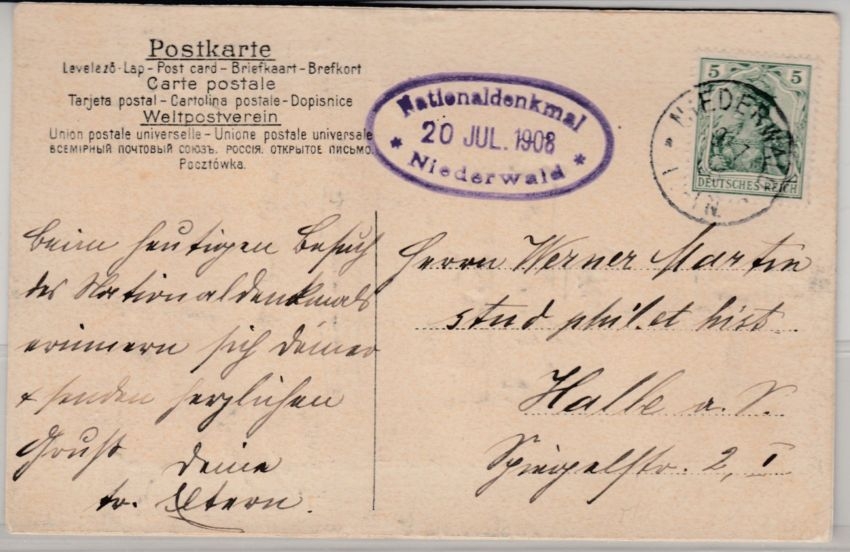 Postkarte
Levelező-Lap – Post card – Briefkaart – Brefkort
Carte postale
Tarjeta postal – Cartolina postale – Dopisnice
Weltpostverein
Union postale universelle – Unione postale universale
ВСЕМІРНЫЙ ПОЧТОВЫЙ СОЮЗЪ. РОССІЯ. ОТКРЫТОЕ ПИСЬМО.
Pocztówka.
Nationaldenkmal
20 JUL. 1908
* Niederwald *
5 5
DEUTSCHES REICH
NIEDERWALD
beim heutigen Besuch
des Nationaldenkmals
erinnern sich deiner
+ senden herzlichen
Gruß deine
tr. Eltern.
Herrn Werner Martin
stud phil. et hist.
Halle a. S.
Spiegelstr. 2, I